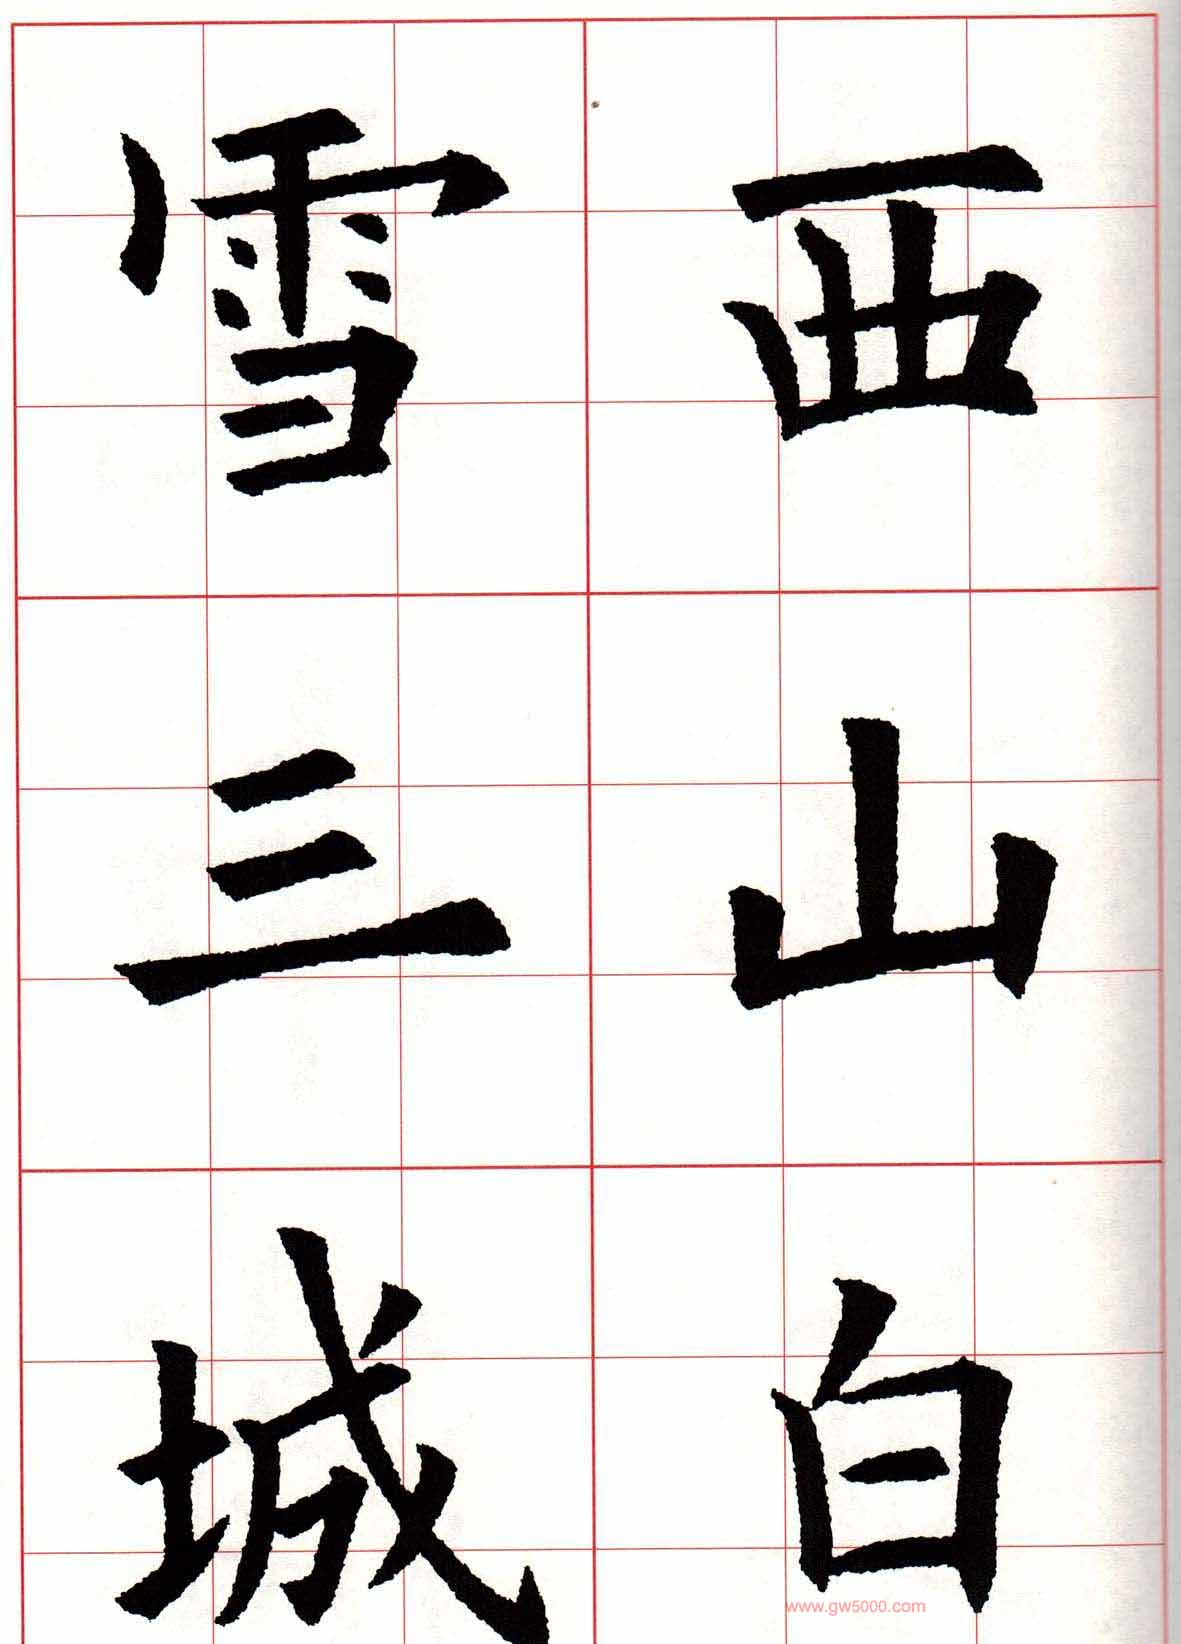 西山白
雪三城
www.gw5000.com